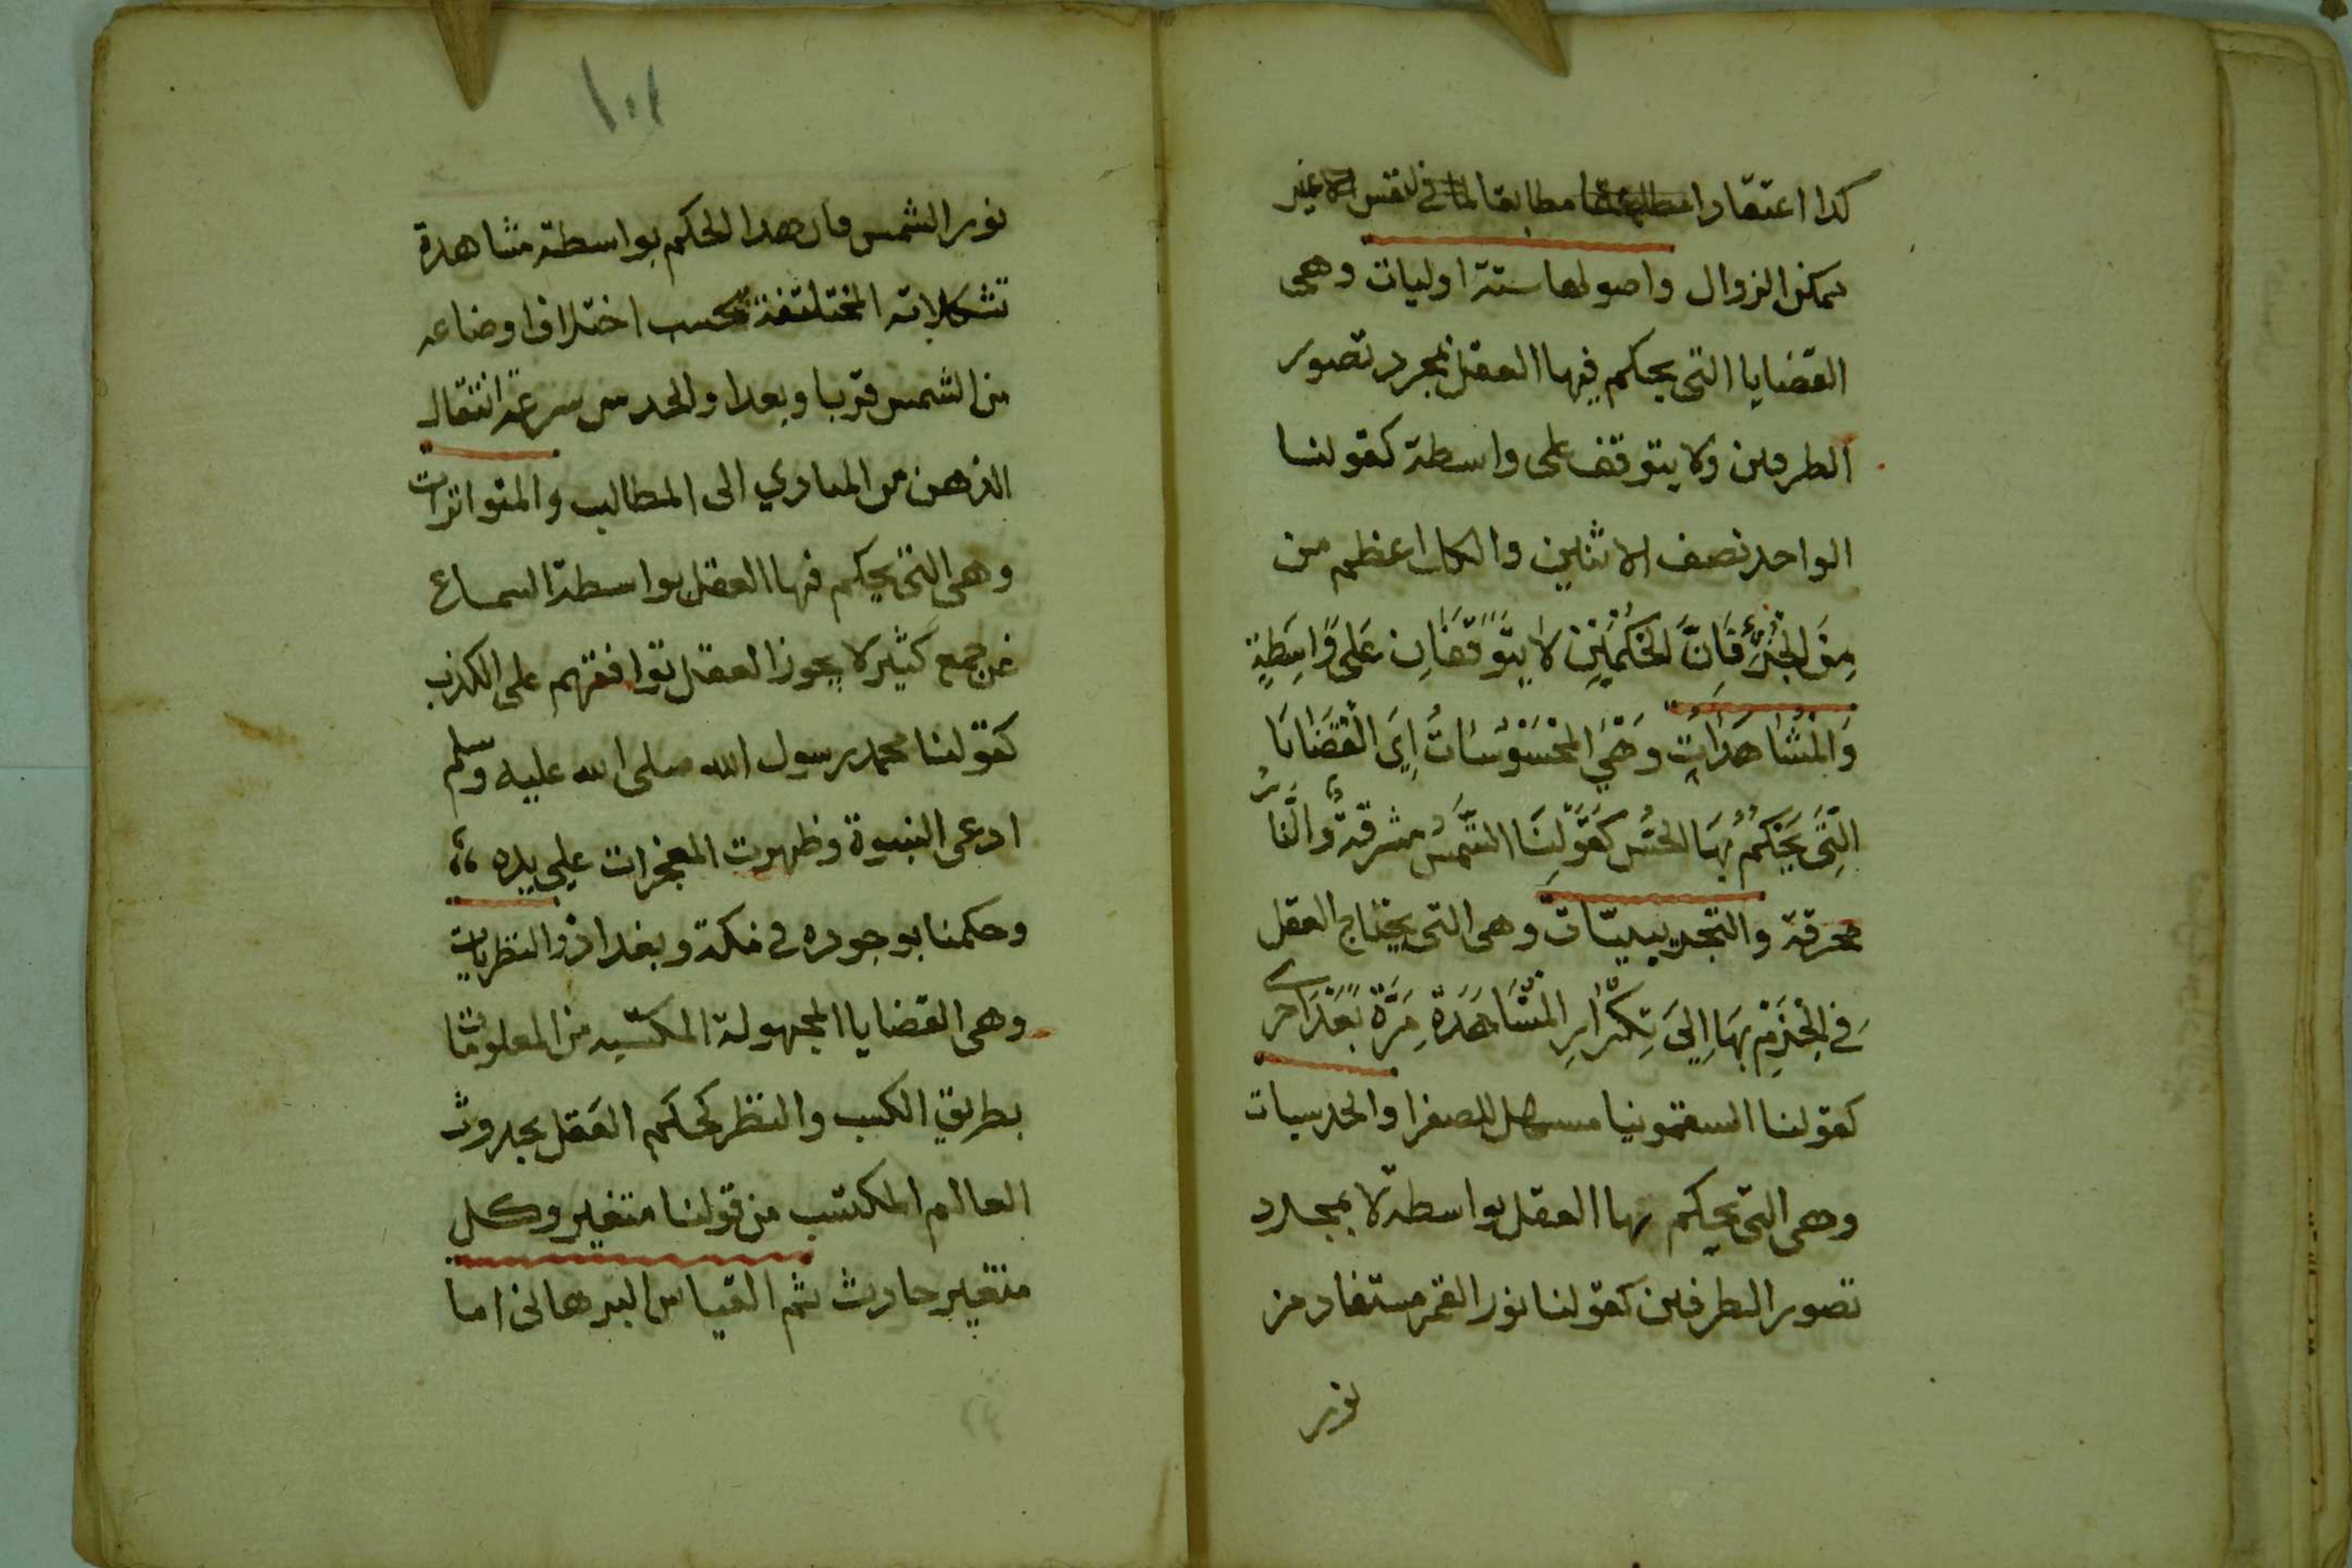 كدا اعتقادا مطابقا لما في نفس الا غير
يمكن الزوال واصولها ستة اوليات وهى
القضايا التى يحكم فيها العقل بمجرد تصور
الطرفين ولا يتوقف على واسطة كقولنا
الواحد نصف الاثنين والكل اعظم من
مِنَ الجُزْءِ فَاِنَّ الحُكْمَيْنِ لا يَتَوَقَّفَانِ عَلى وَاسِطَةٍ
وَالمُشَاهَدَاتِ وَهْيَ المَحْسُوْسَاتُ اِىَ القَضَايَا
الَّتِى يَحْكُمُ بِهَا الحِسُّ كَقَوْلِنَا الشَّمْسُ مشرقةٌ وَالنَّارُ
محرقة والتجريبيّات وهى التى يحتاج العقل
فِى الجَزْمِ بِهَا اِلىَ تِكْرَارِ المُشَاهَدَةِ مَرَّةً بَعْدَ اخرى
كقولنا السقمونيا مسهل للصفرا والحدسيات
وهى التى يحكم بها العقل بواسطة لا بمجرد
تصور الطرفين كقولنا نور القمر مستفاد من
نور
١٠١
نور الشمس فان هدا الحكم بواسطة مشاهدة
تشكلاته المختلفة بحسب اختلاف اوضاعه
من الشمس قربا وبعدا والحدس سرعة انتقال
الذهن من المبادي الى المطالب والمتواترات
وهى التى يحكم فيها العقل بواسطة السماع
عن جمع كثير لا يجوز العقل توافقهم على الكذب
كقولنا محمد رسول الله صلى الله عليه وسلم
ادعى النبوة وظهرت المعجزات على يده
وحكمنا بوجوده في مكة وبغداذ والنظريات
وهى القضايا المجهولة المكتسبه من المعلومات
بطريق الكسب والنظر كحكم العقل بحدوث
العالم المكتسب من قولنا متغير وكل
متغير حادث ثم القياس البرهانى اما